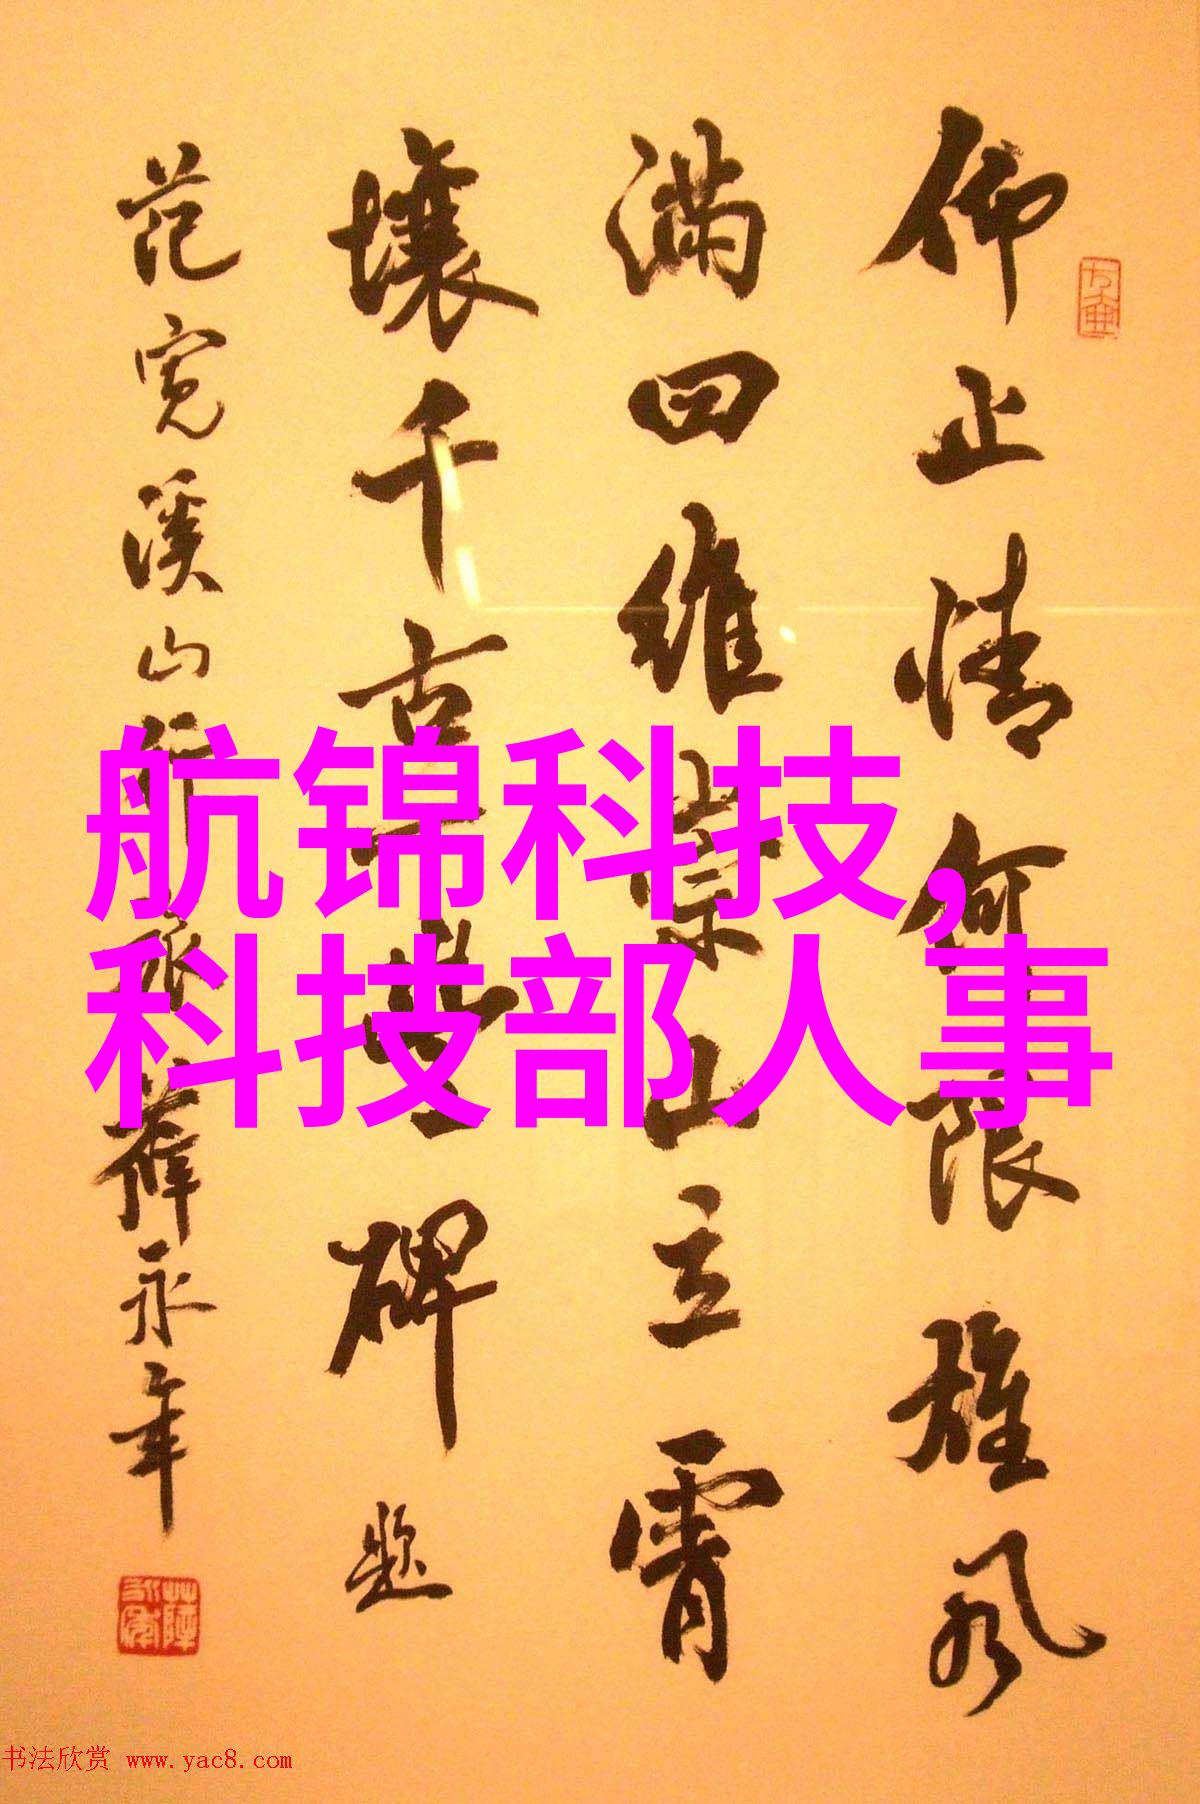 仰止情何限雄风
满四维崇山立霄
壤千古碑题
范宽溪山行旅薛永年
航锦科技,
科技部人事
书法欣赏 www.yac8.com